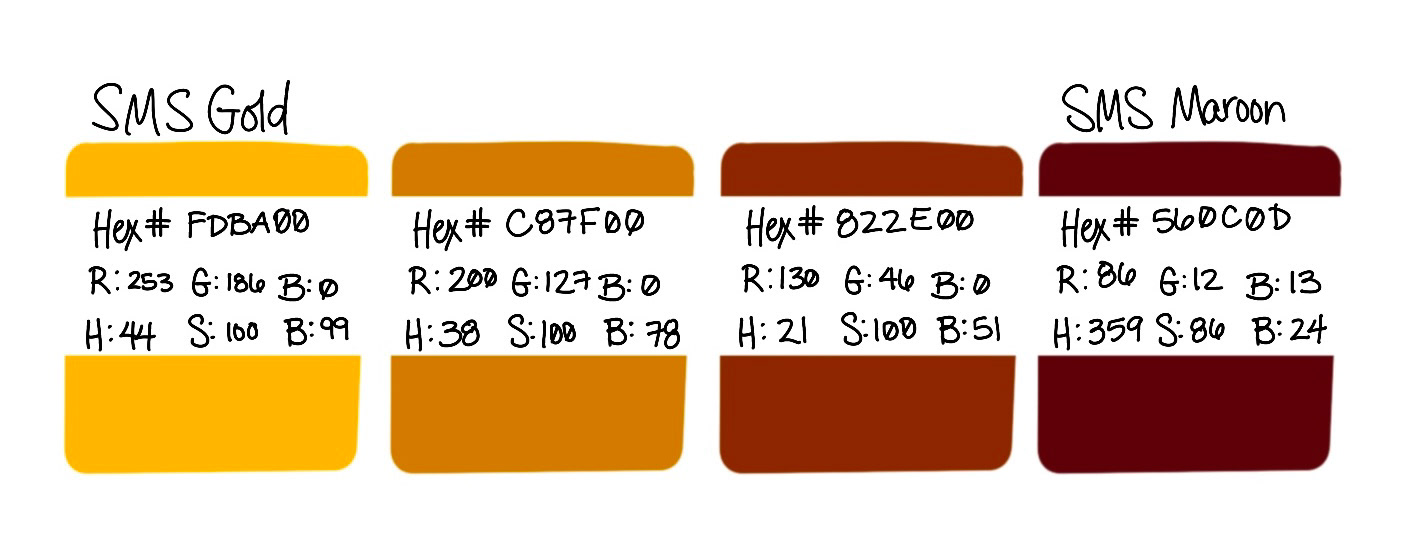 SMS Gold
Hex# FDBA00
R:253 G:186 B:0
H:44 S:100 B:99
Hex# C87F00
R:200 G:127 B:0
H:38 S:100 B:78
Hex# 822E00
R:130 G:46 B:0
H:21 S:100 B:51
SMS Maroon
Hex# 560C0D
R:86 G:12 B:13
H:359 S:86 B:24